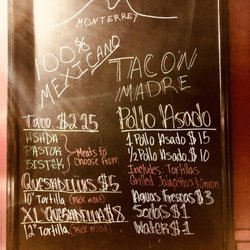 MONTERREY
100%
MEXICANO
TACON
MADRE
Taco $2.25
ASADA
PASTOR
BISTEK
Meats to
choose from
QUESADILLAS $5
10" TORTILLA (Pick meat)
XL QUESADILLA $8
12" TORTILLA (Pick meat)
Pollo Asado
1 Pollo Asado $15
1/2 Pollo Asado $10
Includes: Tortillas
Grilled Jalapeños & Onion
Aguas Frescas $3
Sodas $1
Water $1